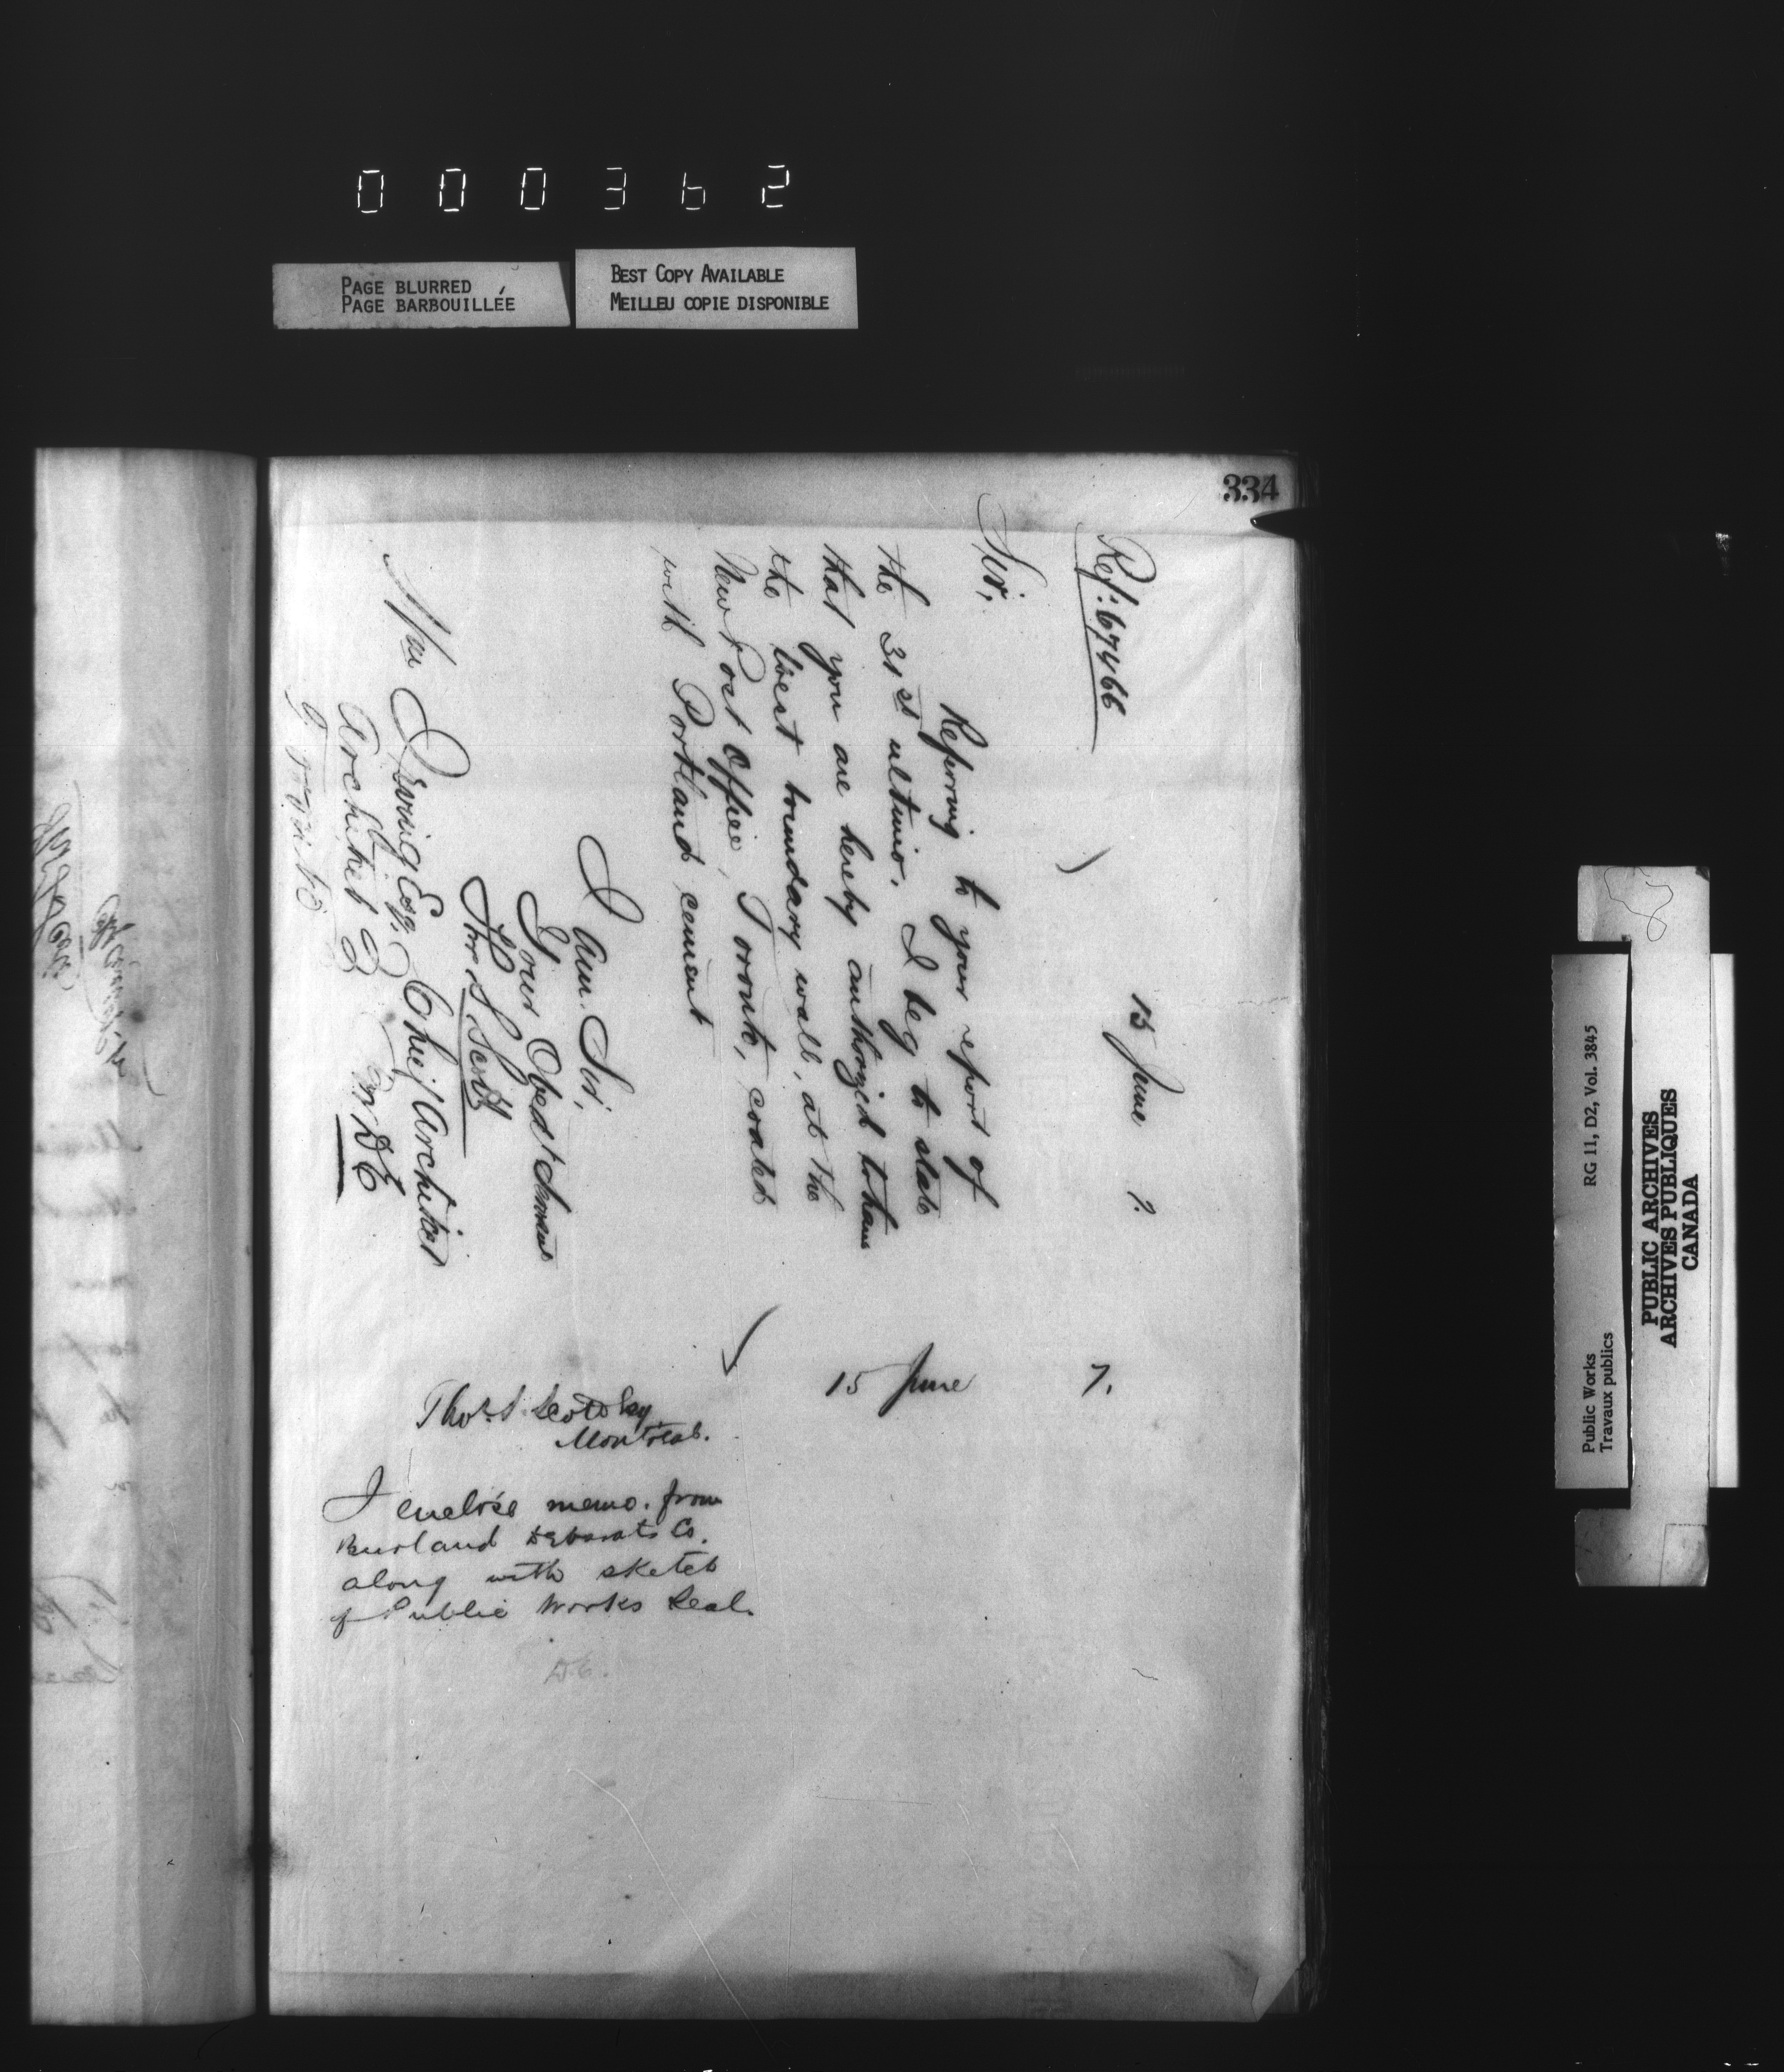 000362
PAGE BLURRED
PAGE BARBOUILLÉE
BEST COPY AVAILABLE
MEILLEU COPIE DISPONIBLE
334
Ref: 67466
15 June 7.
Sir,
Referring to your report of
the 31st ultimo, I beg to state
that you are hereby authorized to have
the West boundary wall, at the
New Post Office, Toronto, coated
with Portland cement
I am, Sir,
Your Obedt Servant
Thos S. Scott
Chief Architect
Wm Irving Esq,
Architect &c
Toronto
D E
15 June 7.
Thos S. Scott Esq
Montreal.
I enclose memo. from
Burland Desbarats Co.
along with sketch
of Public Works Seal.
D.E.
Public Works RG 11, D2, Vol. 3845
Travaux publics
PUBLIC ARCHIVES
ARCHIVES PUBLIQUES
CANADA